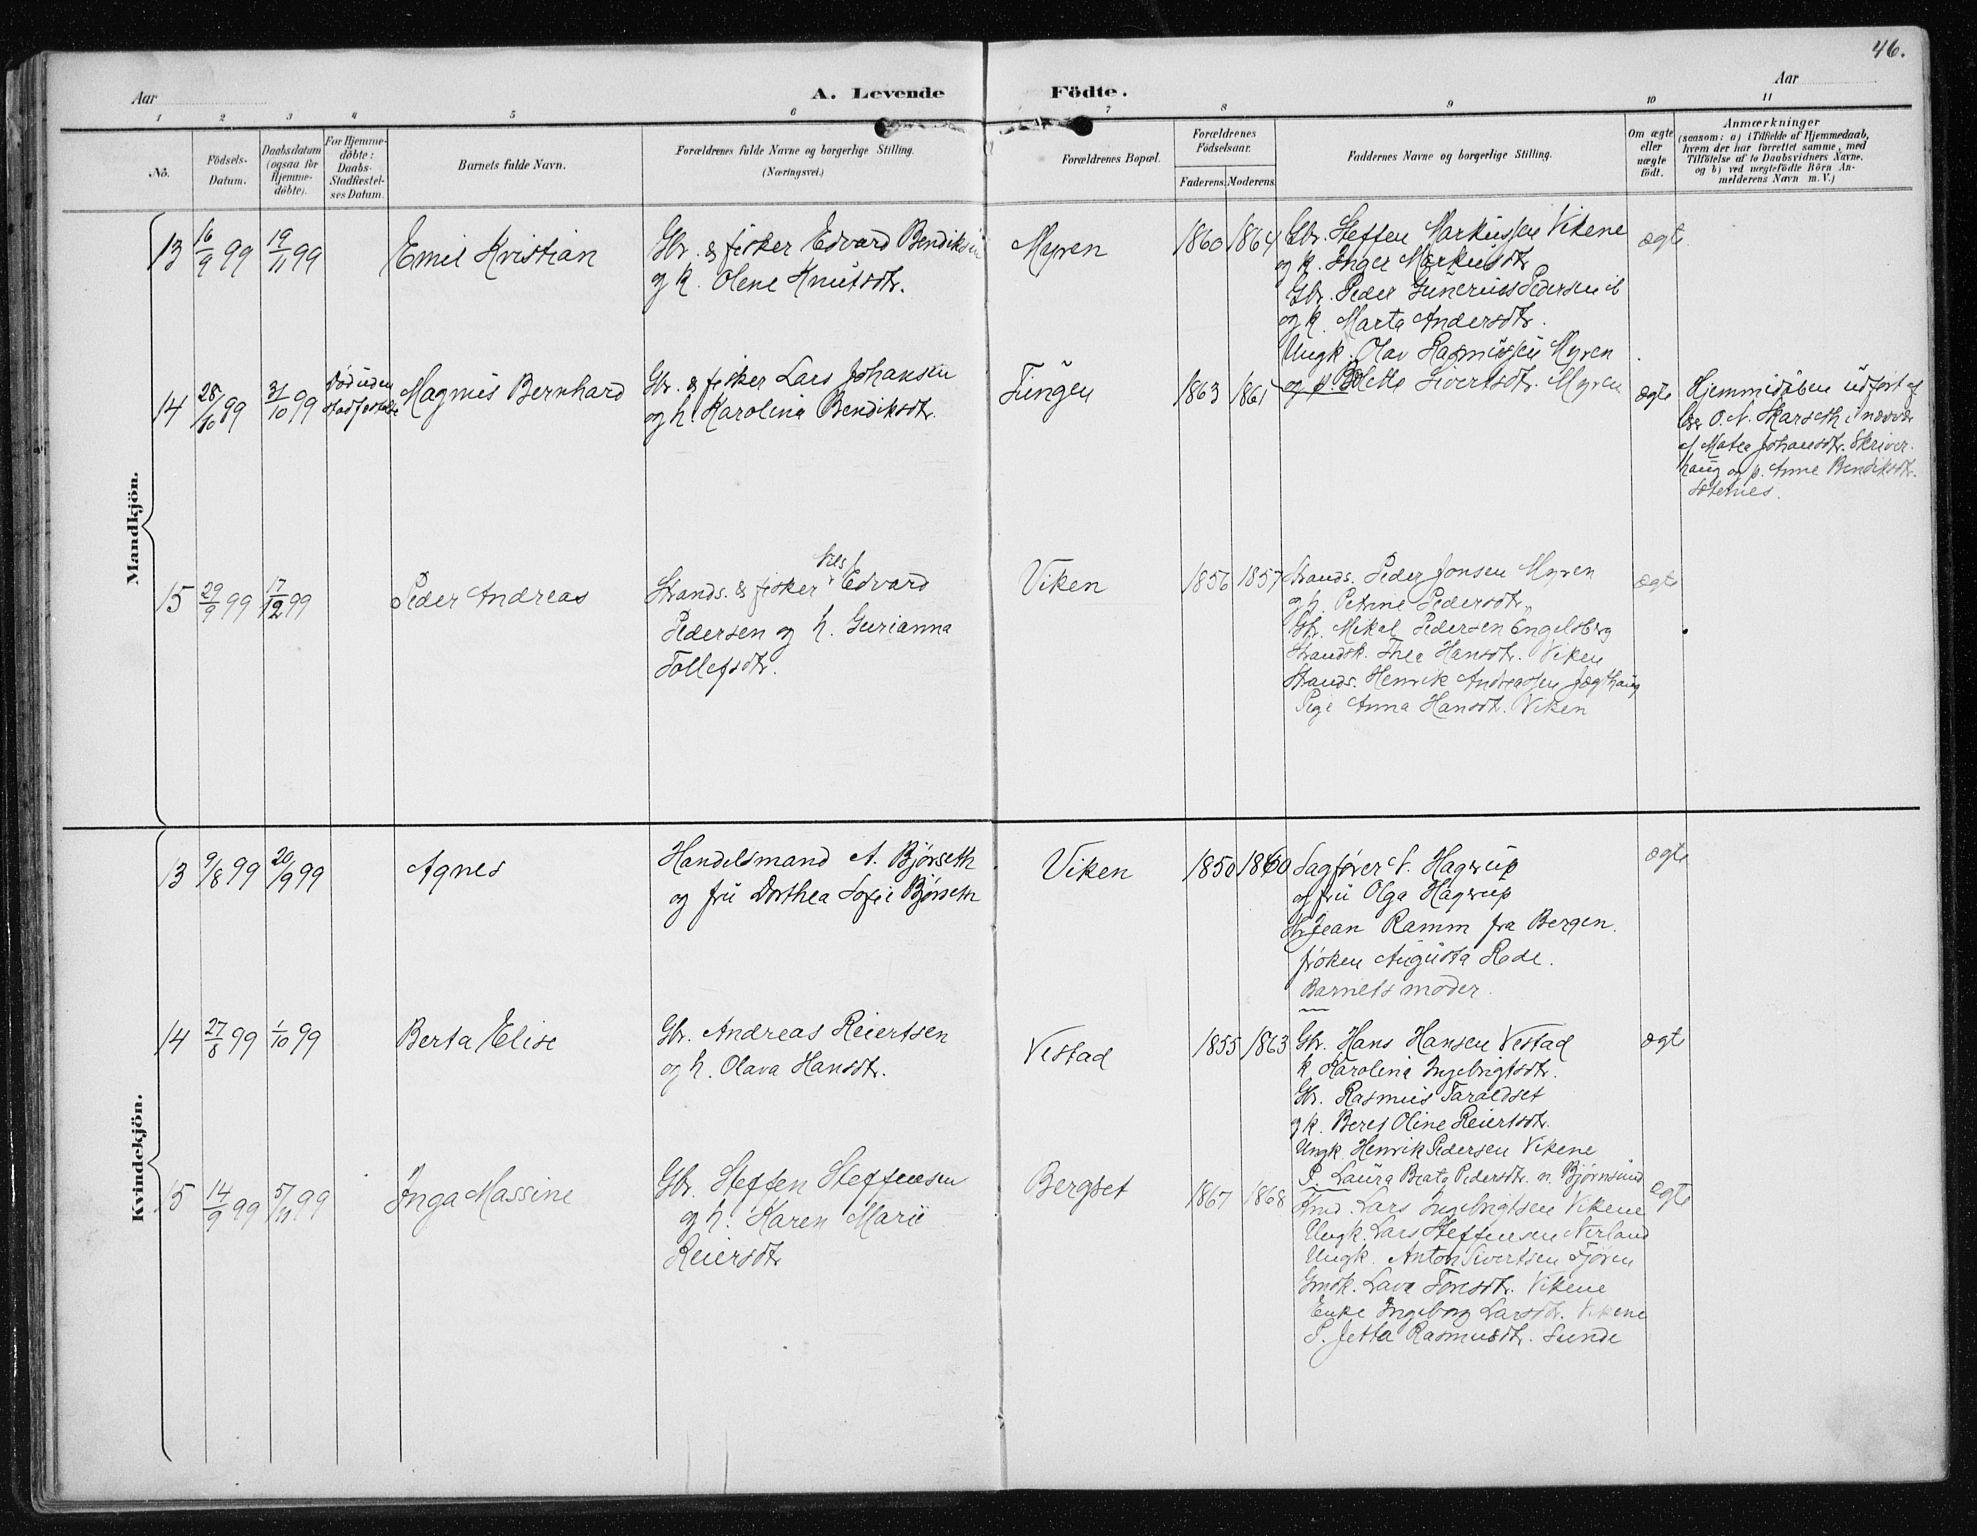 46.
Aar
A. Levende
Födte.
Aar
1 2 3 4 5 6 7 8 9 10 11
No.
Födsels-
Datum.
Daabsdatum
(ogsaa for
Hjemme-
döbte).
For Hjemme-
döbte:
Daabs-
Stadfæstel-
ses Datum.
Barnets fulde Navn.
Forældrenes fulde Navne og borgerlige Stilling.
(Næringsvei.)
Forældrenes Bopæl.
Forældrenes
Födselsaar.
Faderens.
Moderens.
Faddernes Navne og borgerlige Stilling.
Om ægte
eller
uægte
födt.
Anmærkninger
(saasom: a) i Tilfælde af Hjemmedaab,
hvem der har forrettet samme, med
Tilföielse af to Daabsvidners Navne.
og b) ved uægtefödte Börn An-
melderens Navn m. V.)
Mandkjön.
13 16/9 99 19/11 99 Emil Kristian
Gbr. & fisker Edvard Bendiksen
og k. Olene Knutsdtr.
Myren 1860 1864
Gbr. Steffen Markussen Vikene
og k. Inger Markusdtr
Gbr. Peder Gunerius Pedersen
og k. Marta Andersdtr.
Ungk. Olav Rasmussen Myren
og p. Sivertsdtr. Myren
ægte
14 28/10 99 31/10 99
Död uden
stadfæstelse
Magnus Bernhard
Gbr. & fisker Lars Johansen
og h. Karolina Bendiksdtr.
Tungen 1863 1861
ægte
Hjemmedåben udført af
O. N. Skarseth i nærvær
af Matea Johansdtr. Skriver-
haug og p. Anne Bendiksdtr.
15 29/9 99 17/12 99 Peder Andreas
Nils
Strands. & fisker Edvard
Pedersen og h. Gurianna
Tollefsdtr.
Viken 1856 1857
Strands. Peder Jonsen Myren
og h. Petrine Pedersdtr.
Gbr. Mikal Pedersen Engelsberg
Strandsk. Thea Hansdtr. Viken
Strands. Henrik Andreassen Jægthaug
Pige Anna Hansdtr. Viken
ægte
Kvindekjön.
13 9/8 99 20/9 99 Agnes
Handelsmand A. Bjørseth
og fru Dorthea Sofie Bjørseth
Viken 1850 1860
Sagfører N. Hagerup
og fru Olga Hagerup
Hr Jean Ramm fra Bergen.
frøken Augusta Rode.
Barnets moder.
ægte
14 27/8 99 1/10 99 Berta Elise
Gbr. Andreas Reiertsen
og h. Olava Hansdtr.
Vestad 1855 1863
Gbr. Hans Hansen Vestad
k. Karolina Ingebrigtsdtr.
Gbr. Rasmus Taraldset
og k. Beret Oline Reiertsdtr.
Ungk. Henrik Pedersen Vikene
P. Laura Beata Pedersdtr. n. Bjørnsund
ægte
15 14/9 99 5/11 99 Inga Massine
Gbr. Steffen Steffensen
og h. Karen Marie
Reiersdtr
Bergset 1867 1868
Lars Ingebrigtsen Vikene
Ungk. Lars Steffensen Nerland
Ungk. Anton Sivertsen Tjøren
Gmdk. Lava Toresdtr. Vikene
Enke Ingeborg Larsdtr. Vikene
P. Jetta Rasmusdtr. Sunde
ægte